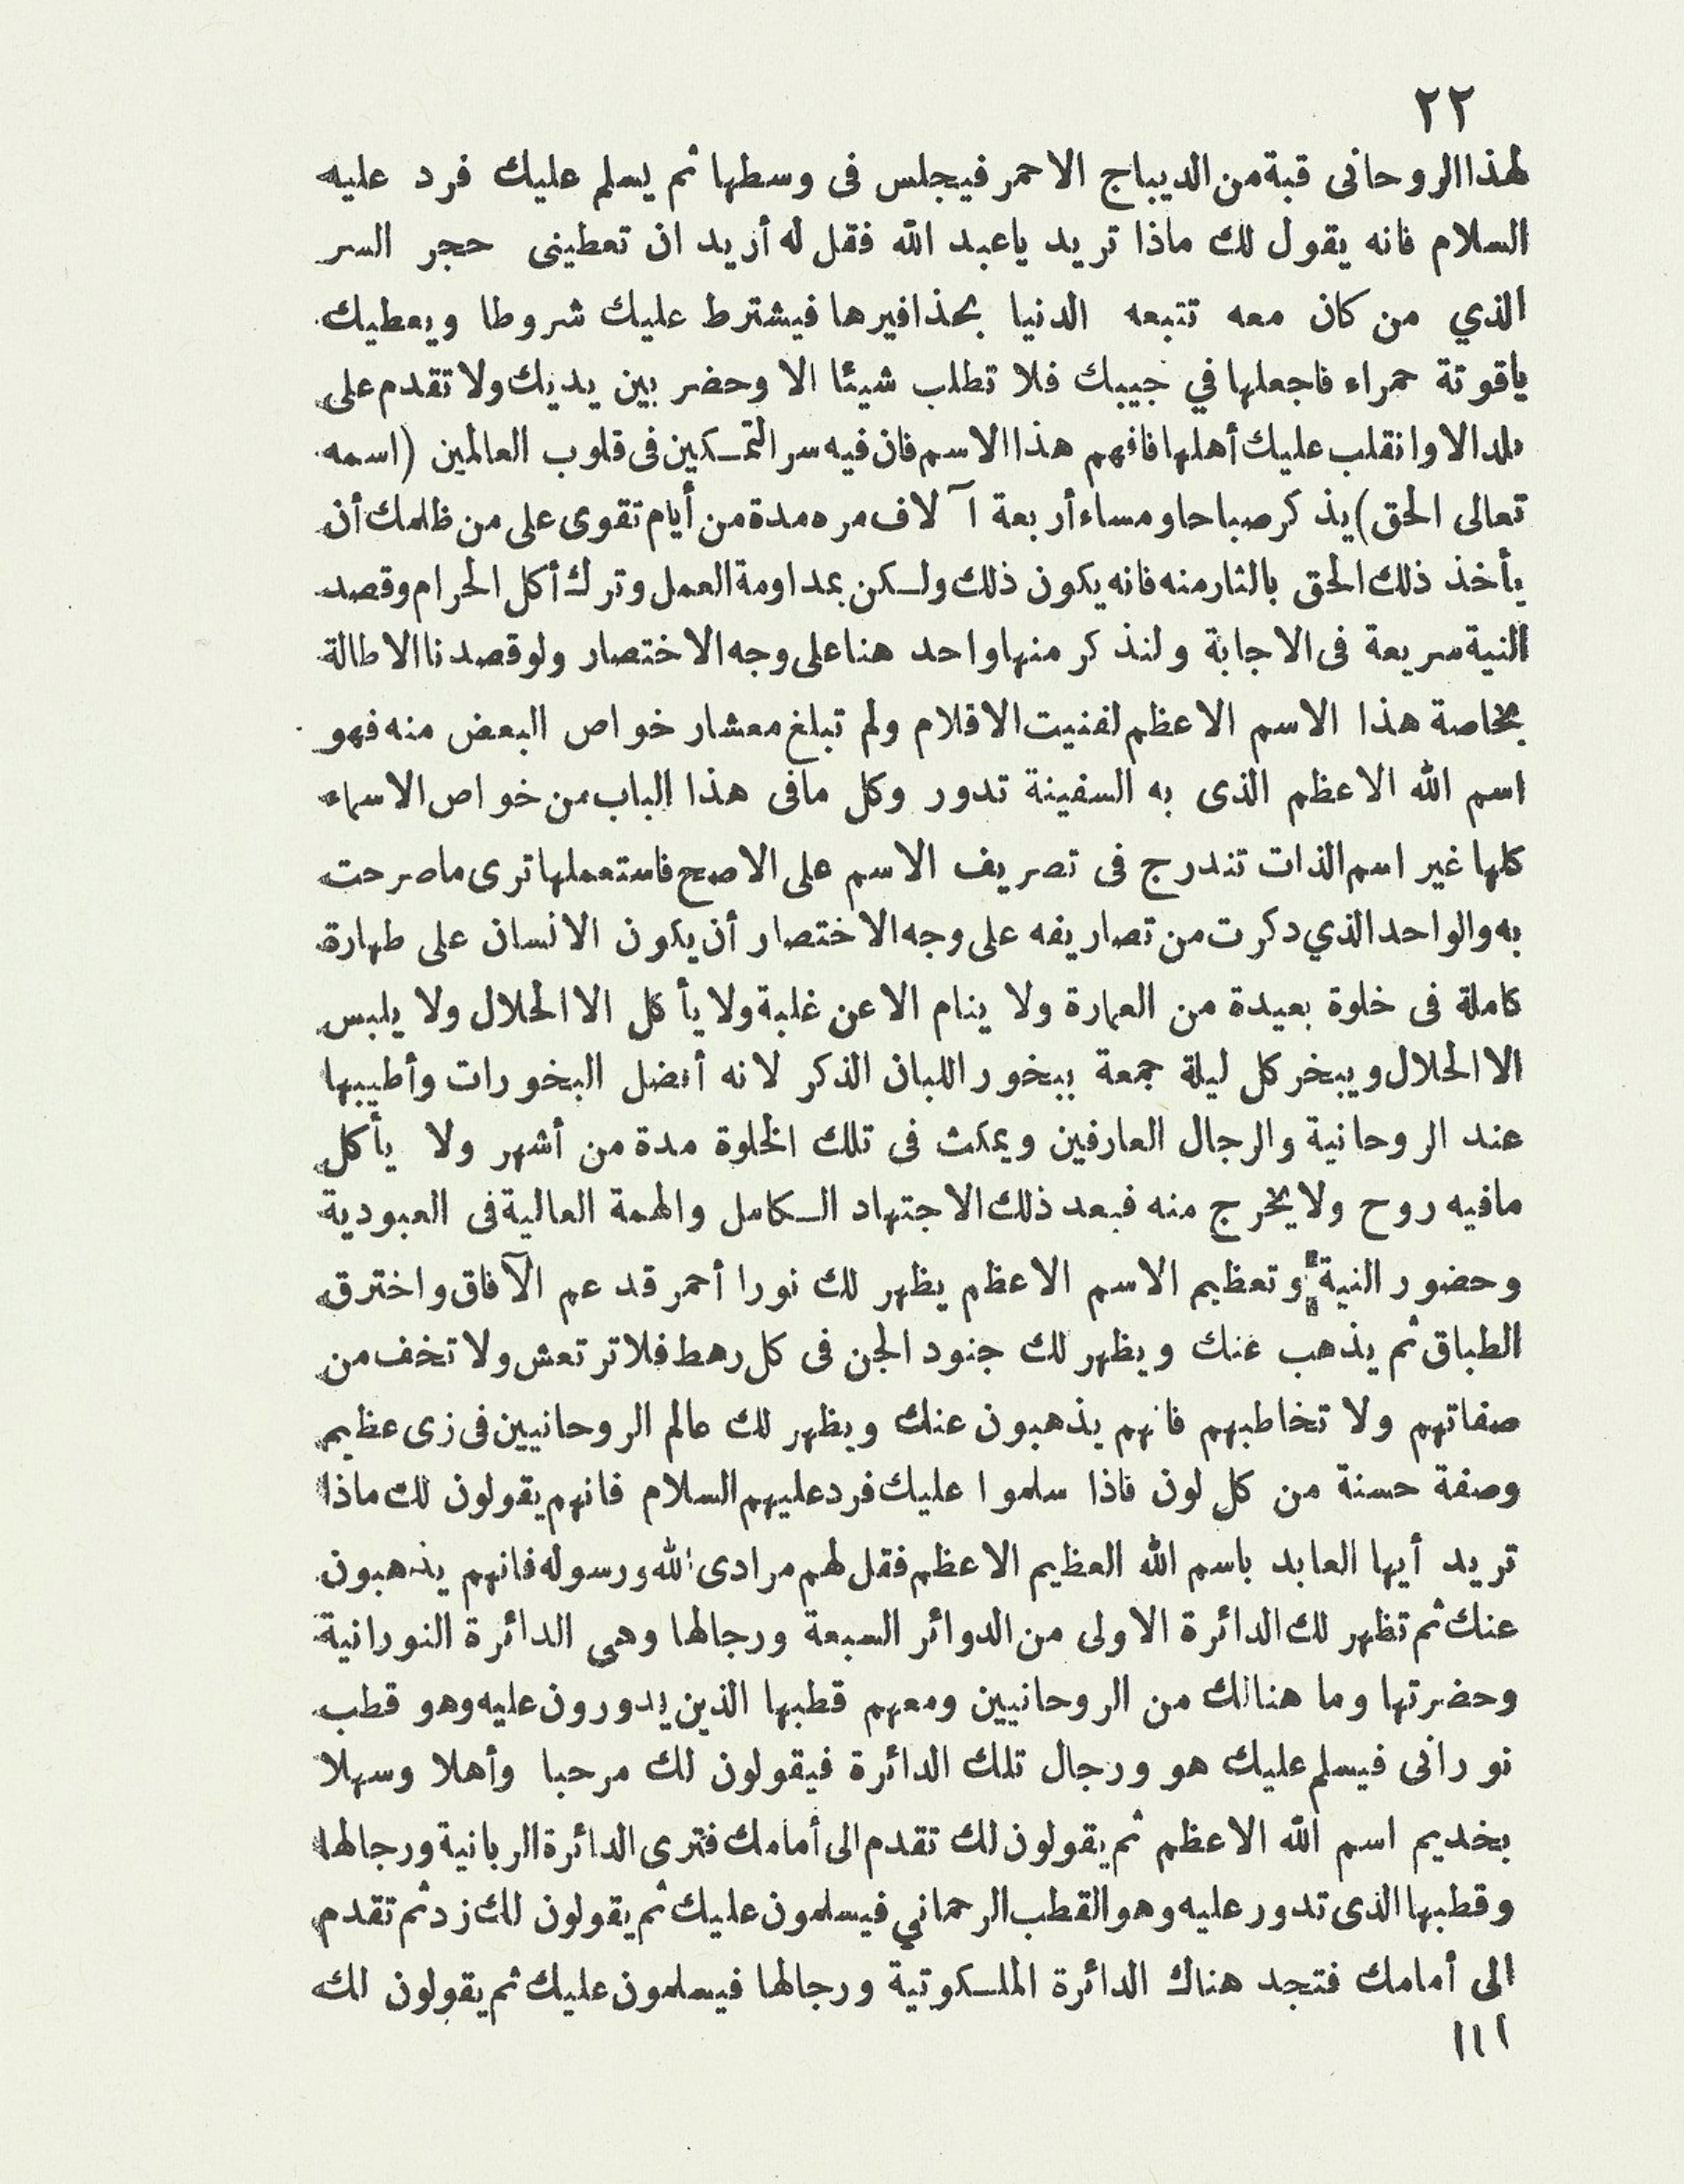 ٢٢
لهذا الروحانى قبة من الديباج الاحمر فيجلس فى وسطها ثم يسلم عليك فرد عليه
السلام فانه يقول لك ماذا تريد ياعبد الله فقل له أريد ان تعطينى حجر السر
الذي من كان معه تتبعه الدنيا بحذافيرها فيشترط عليك شروطا ويعطيك
ياقوتة حمراء فاجعلها في جيبك فلا تطلب شيئا الا وحضر بين يديك ولا تقدم على
بلد الا وانقلب عليك أهلها فافهم هذا الاسم فان فيه سر التمكين فى قلوب العالمين (اسمه
تعالى الحق) يذكر صباحا ومساء أربعة آلاف مره مدة من أيام تقوى على من ظلمك أن
يأخذ ذلك الحق بالثار منه فانه يكون ذلك ولكن بمداومة العمل وترك أكل الحرام وقصد
النية سريعة فى الاجابة ولنذكر منها واحد هنا على وجه الاختصار ولو قصدنا الاطالة
بخاصة هذا الاسم الاعظم لفنيت الاقلام ولم تبلغ معشار خواص البعض منه فهو
اسم الله الاعظم الذى به السفينة تدور وكل مافى هذا الباب من خواص الاسماء
كلها غير اسم الذات تندرج فى تصريف الاسم على الاصح فاستعملها ترى ماصرحت
به والواحد الذي دكرت من تصاريفه على وجه الاختصار أن يكون الانسان على طهارة
كاملة فى خلوة بعيدة من العمارة ولا ينام الا عن غلبة ولا يأكل الا الحلال ولا يلبس
الا الحلال ويبخر كل ليلة جمعة ببخور اللبان الذكر لانه أفضل البخورات وأطيبها
عند الروحانية والرجال العارفين ويمكث فى تلك الخلوة مدة من أشهر ولا يأكل
مافيه روح ولا يخرج منه فبعد ذلك الاجتهاد الكامل والهمة العالية فى العبودية
وحضور النية وتعظيم الاسم الاعظم يظهر لك نورا أحمر قد عم الآفاق واخترق
الطباق ثم يذهب عنك ويظهر لك جنود الجن فى كل رهط فلا ترتعش ولا تخف من
صفاتهم ولا تخاطبهم فانهم يذهبون عنك ويظهر لك عالم الروحانيين فى زى عظيم
وصفة حسنة من كل لون فاذا سلموا عليك فرد عليهم السلام فانهم يقولون لك ماذا
تريد أيها العابد باسم الله العظيم الاعظم فقل لهم مرادى الله ورسوله فانهم يذهبون
عنك ثم تظهر لك الدائرة الاولى من الدوائر السبعة ورجالها وهى الدائرة النورانية
وحضرتها وما هنالك من الروحانيين ومعهم قطبها الذين يدورون عليه وهو قطب
نورانى فيسلم عليك هو ورجال تلك الدائرة فيقولون لك مرحبا وأهلا وسهلا
بخديم اسم الله الاعظم ثم يقولون لك تقدم الى أمامك فترى الدائرة الربانية ورجالها
وقطبها الذى تدور عليه وهو القطب الرحماني فيسلمون عليك ثم يقولون لك زد ثم تقدم
الى أمامك فتجد هناك الدائرة الملكوتية ورجالها فيسلمون عليك ثم يقولون لك
١١١